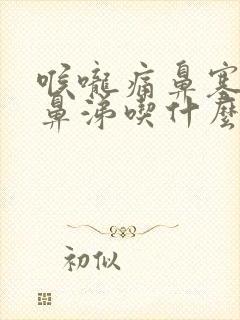 喉嚨痛鼻塞
鼻涕喫什麼
初似